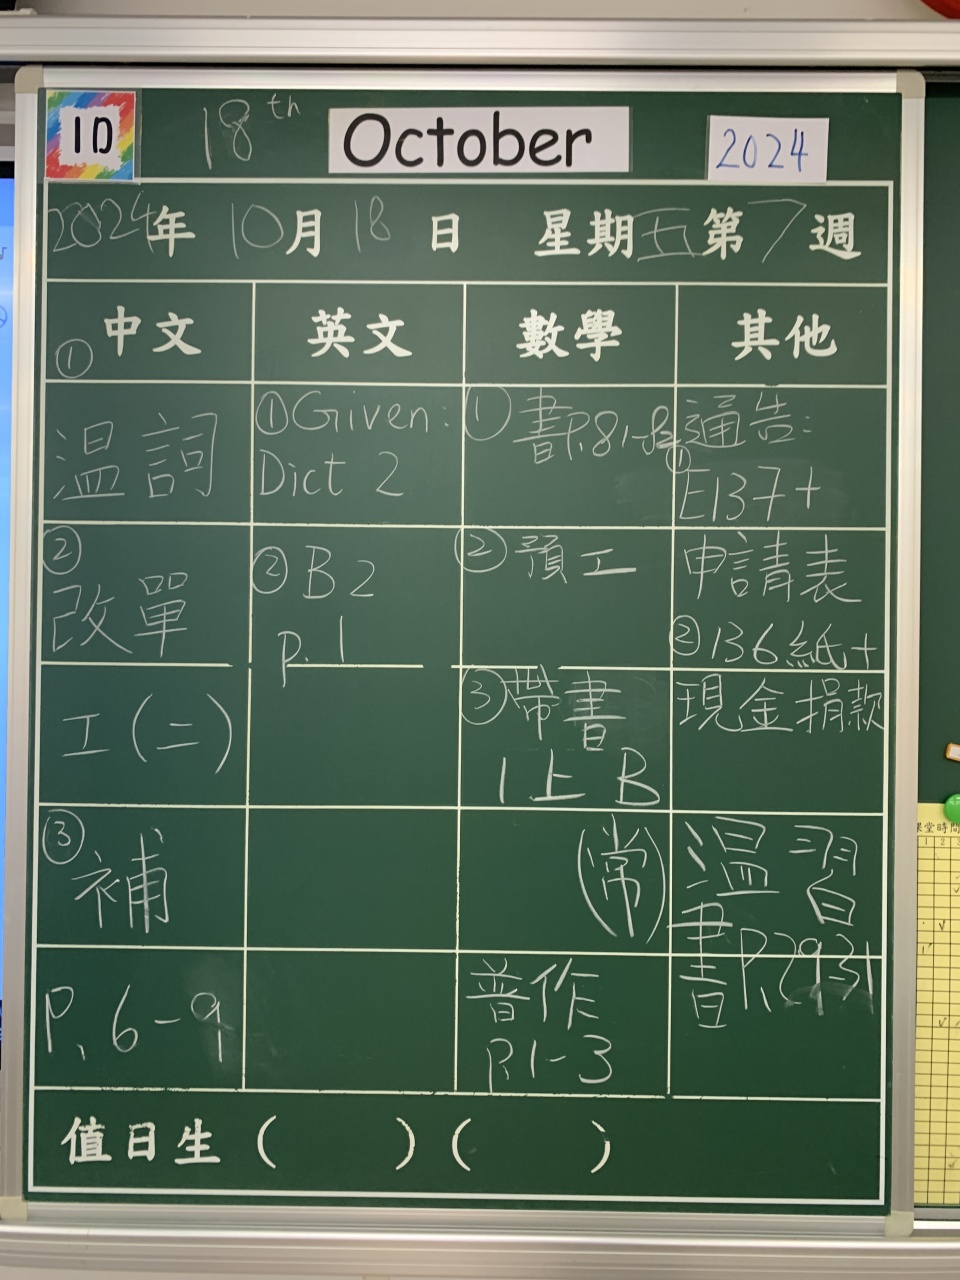 1D
18th October 2024
2024年10月18日 星期五第7週
中文 英文 數學 其他
①
温詞
②
改單
工(二)
③
補
P.6-9
①Given:
Dict 2
②B2
p.1
①書P.81-82
②預工
③帶書
1上B
(常)
普作
P.1-3
通告:
①
E137+
申請表
②136紙+
現金捐款
温習
書P.2931
值日生 ( ) ( )
課堂時間
1 2 3